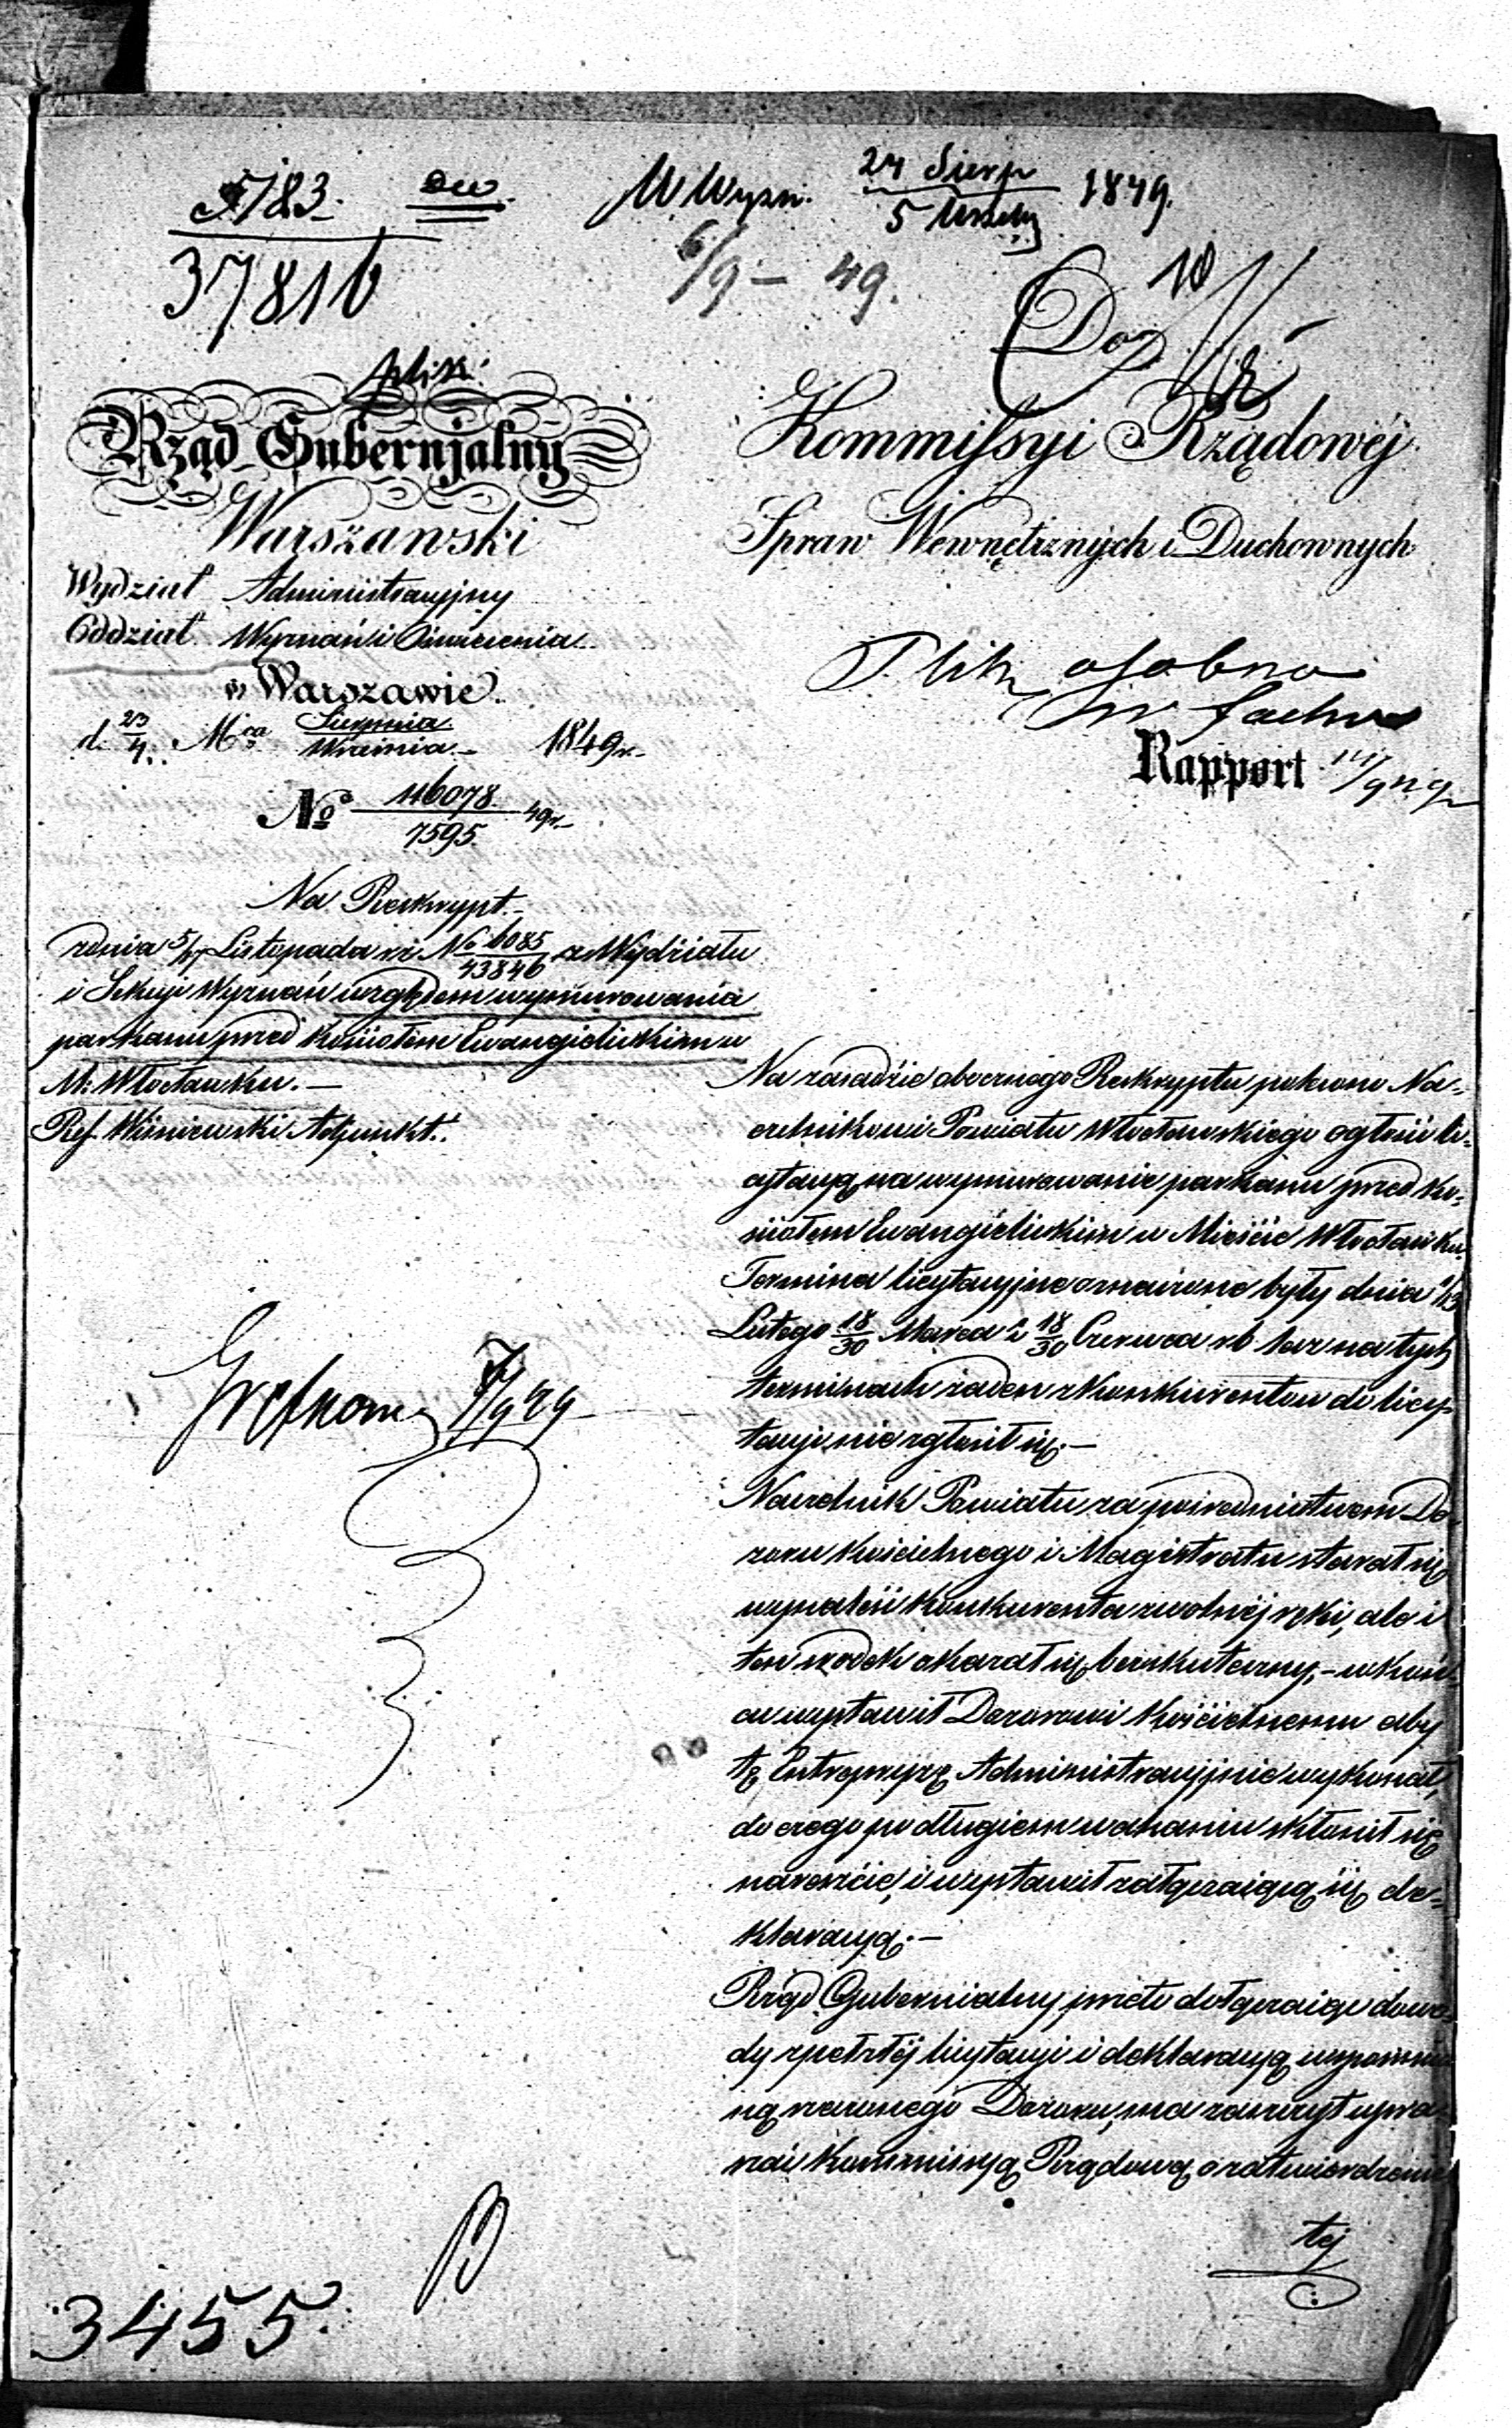 5783.
37816
W Wyzn. 24 Sierp / 5 Wrześ 1849.
6/9 – 49.
plik.
Rząd Gubernjalny
Warszawski
Wydział Administracyjny
Oddział Wyznań i Oświecenia
w Warszawie
d. 23/4 Mca Sierpnia / Września 1849 r.
No 116078 / 7595 49 r.
Na Reskrypt.
z dnia 5/17 Listopada r. z. No 6085 / 43846 z Wydziału
i Sekcyi Wyznań względem wymurowania
parkanu przed Kościołem Ewangielickim w
M: Włocławku. —
Ref. Wiśniewski Adjunkt.
Do
Kommissyi Rządowéj
Spraw Wewnętrznych i Duchownych
Plik osobno
Rapport
Na zasadzie obocznego Reskryptu polecono Na-
czelnikowi Powiatu Włocławskiego ogłosić li-
cytacyą na wymurowanie parkanu przed Ko-
ściołem Ewangielickim w Mieście Włocławku.
Termina licytacyjne oznaczone były dnia 1/13
Lutego 18/30 Marca i 18/30 Czerwca r b lecz na tych
terminach żaden z Konkurentów do licy-
tacyi nie zgłosił się. —
Naczelnik Powiatu za pośrednictwem Do-
zoru Kościelnego i Magistratu starał się
wynaleść Konkurenta z wolnéj ręki, ale i
ten środek okazał się bezskuteczny, – w koń-
cu wystawił Dozorowi Kościelnemu aby
tę Entrepryzę Administracyjnie wykonał,
do czego po długiem wahaniu skłonił się
nareszcie, i wystawił załączaiącą się de-
klaracyą. —
Rząd Gubernialny przeto dołączaiąc dowo-
dy spełzłéj licytacyi i deklaracyą wspomnio-
ną rzeczonego Dozoru, ma zaszczyt upra-
szać Kommissyą Rządową o zatwierdzenie
téj
3455.